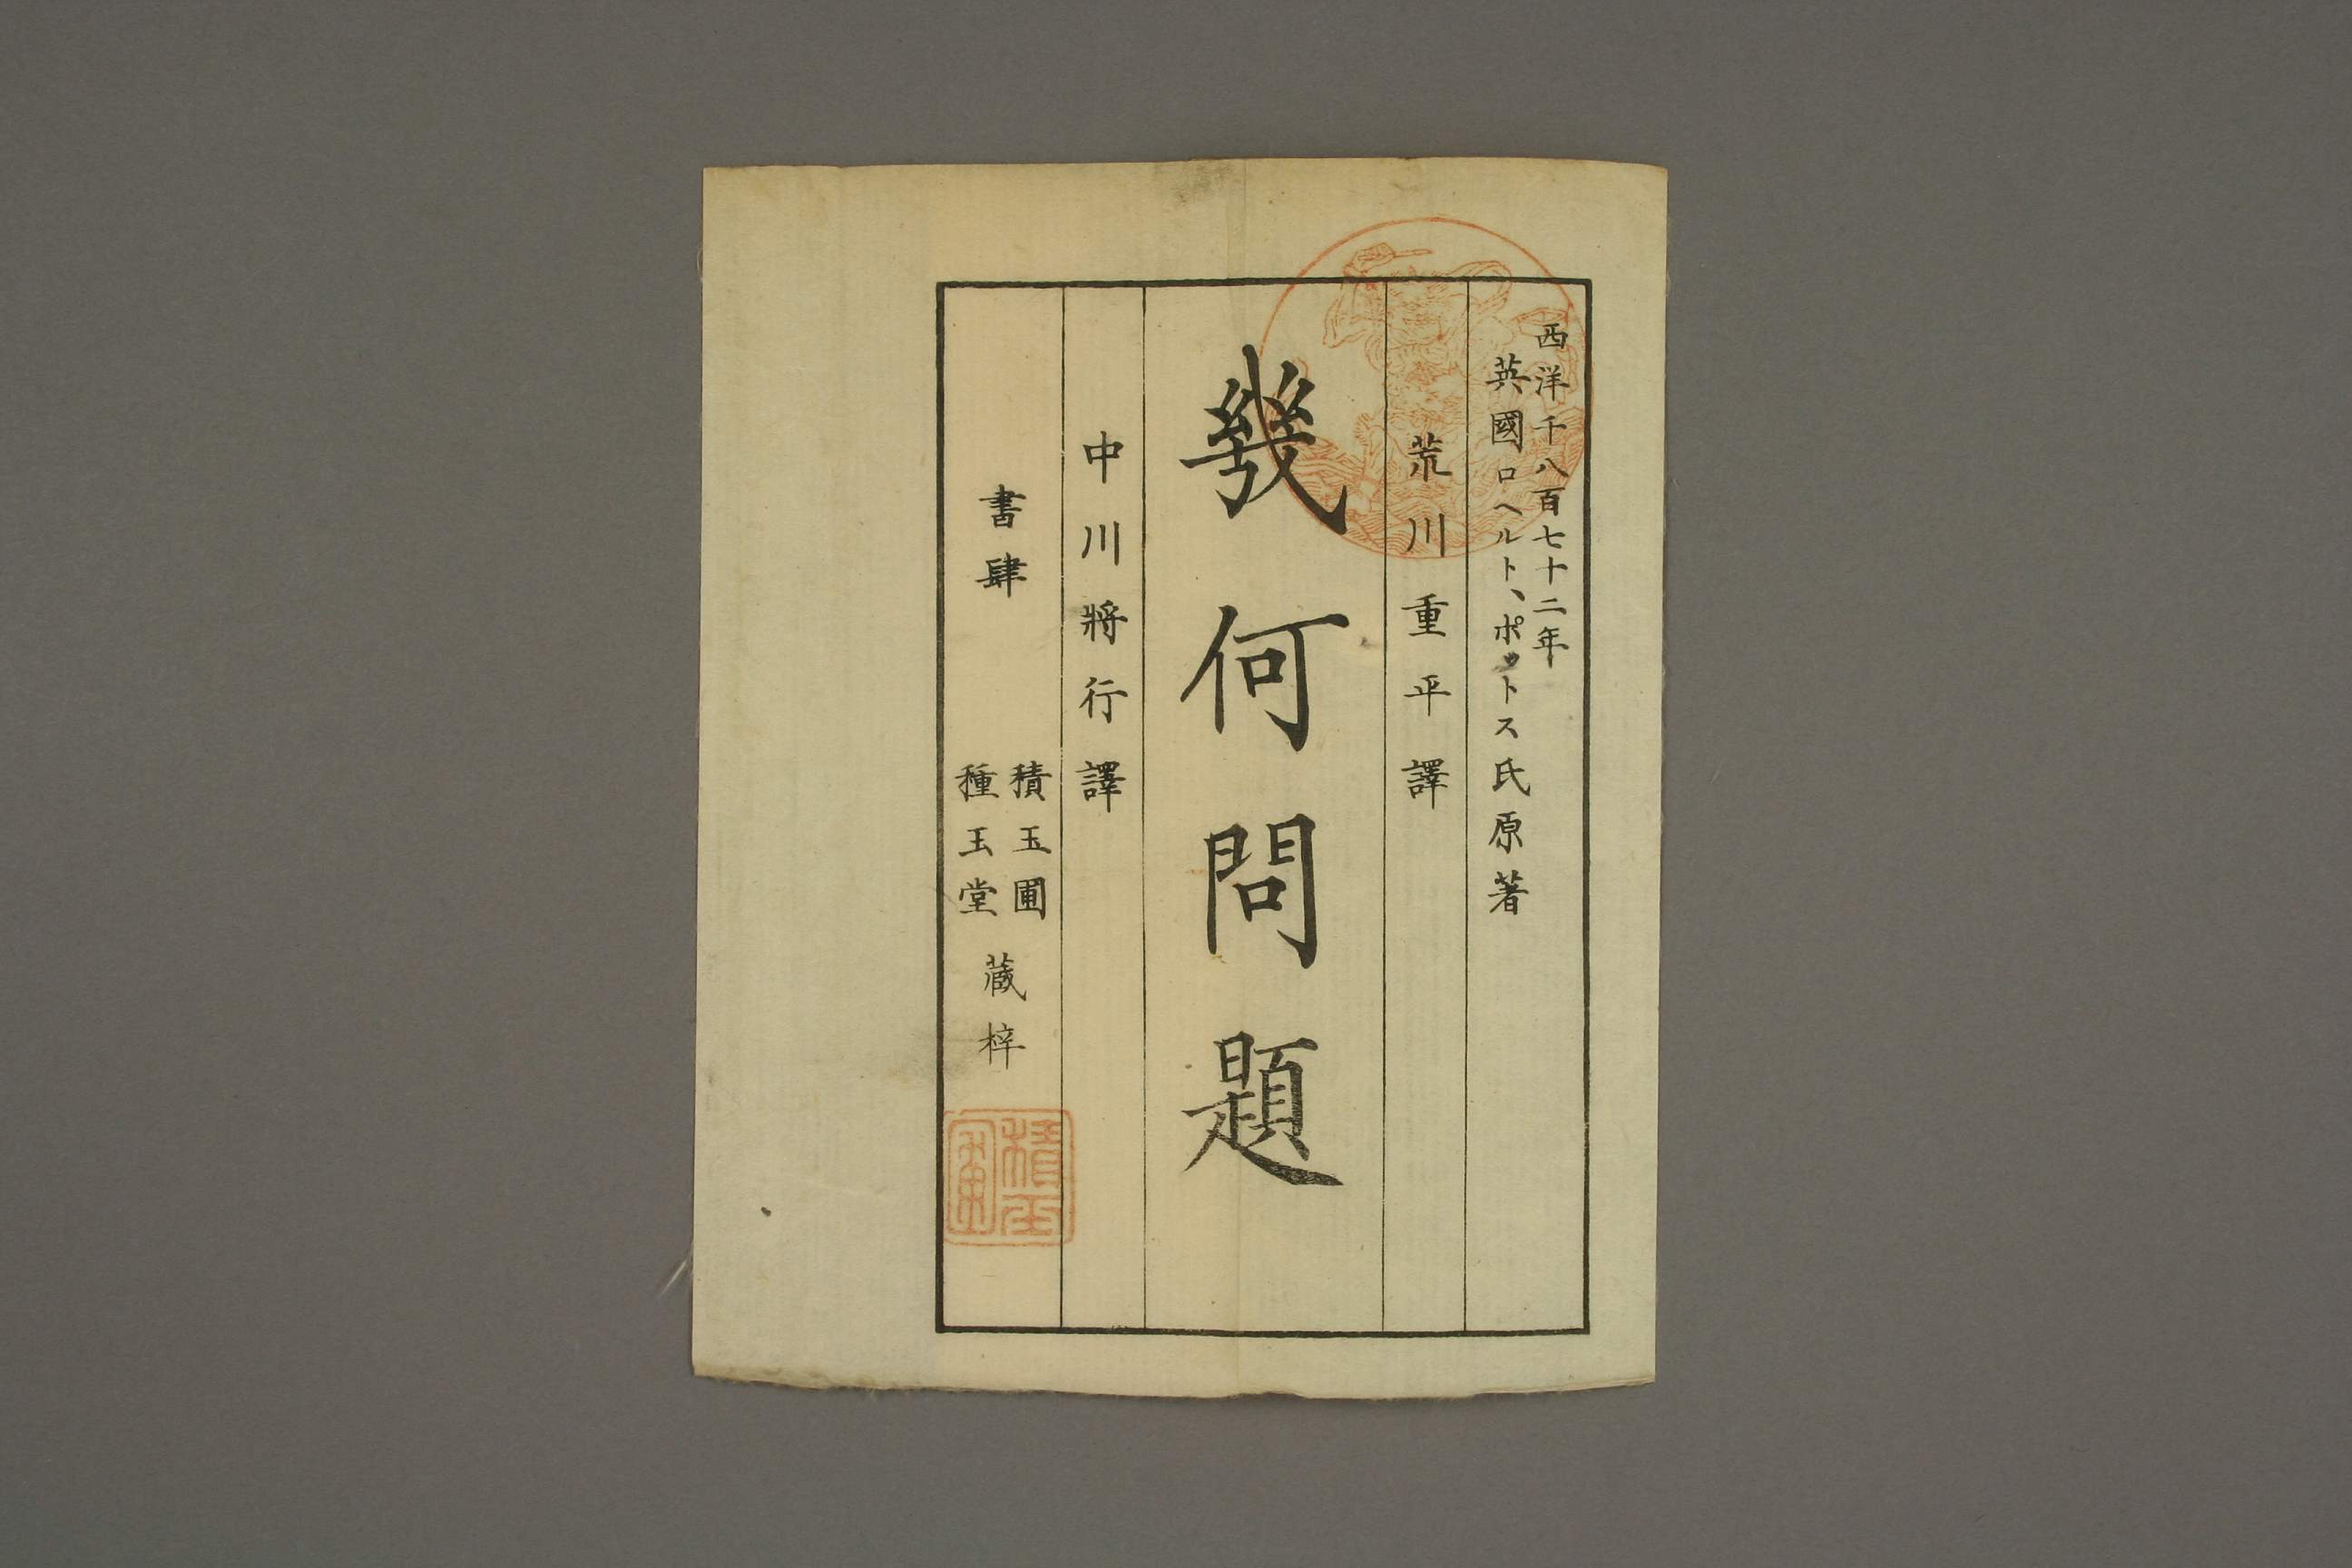 西洋千八百七十二年
英國ロヘルト、ポットス氏原著
荒川重平譯
幾何問題
中川將行譯
書肆
積玉圃
種玉堂
蔵梓
積玉圃